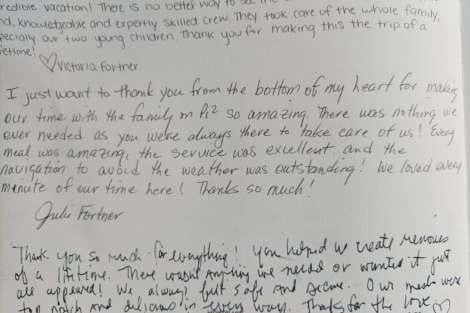 credible vacation! There is no better way to see the
nd, knowledgable and expertly skilled crew. They took care of the whole family,
pecially our two young children. Thank you for making this the trip of a
fetime!
♡Victoria Fortner
I just want to thank you from the bottom of my heart for making
our time with the family on Pi² so amazing. There was nothing we
ever needed as you were always there to take care of us! Every
meal was amazing, the service was excellent and the
navigation to avoid the weather was outstanding! We loved every
minute of our time here! Thanks so much!
Julie Fortner
Thank you so much for everything! You helped us create memories
of a lifetime. There wasn't anything we needed or wanted it just
all appeared! We always felt safe and secure. Our meals were
top notch and delicious in every way. Thanks for the love